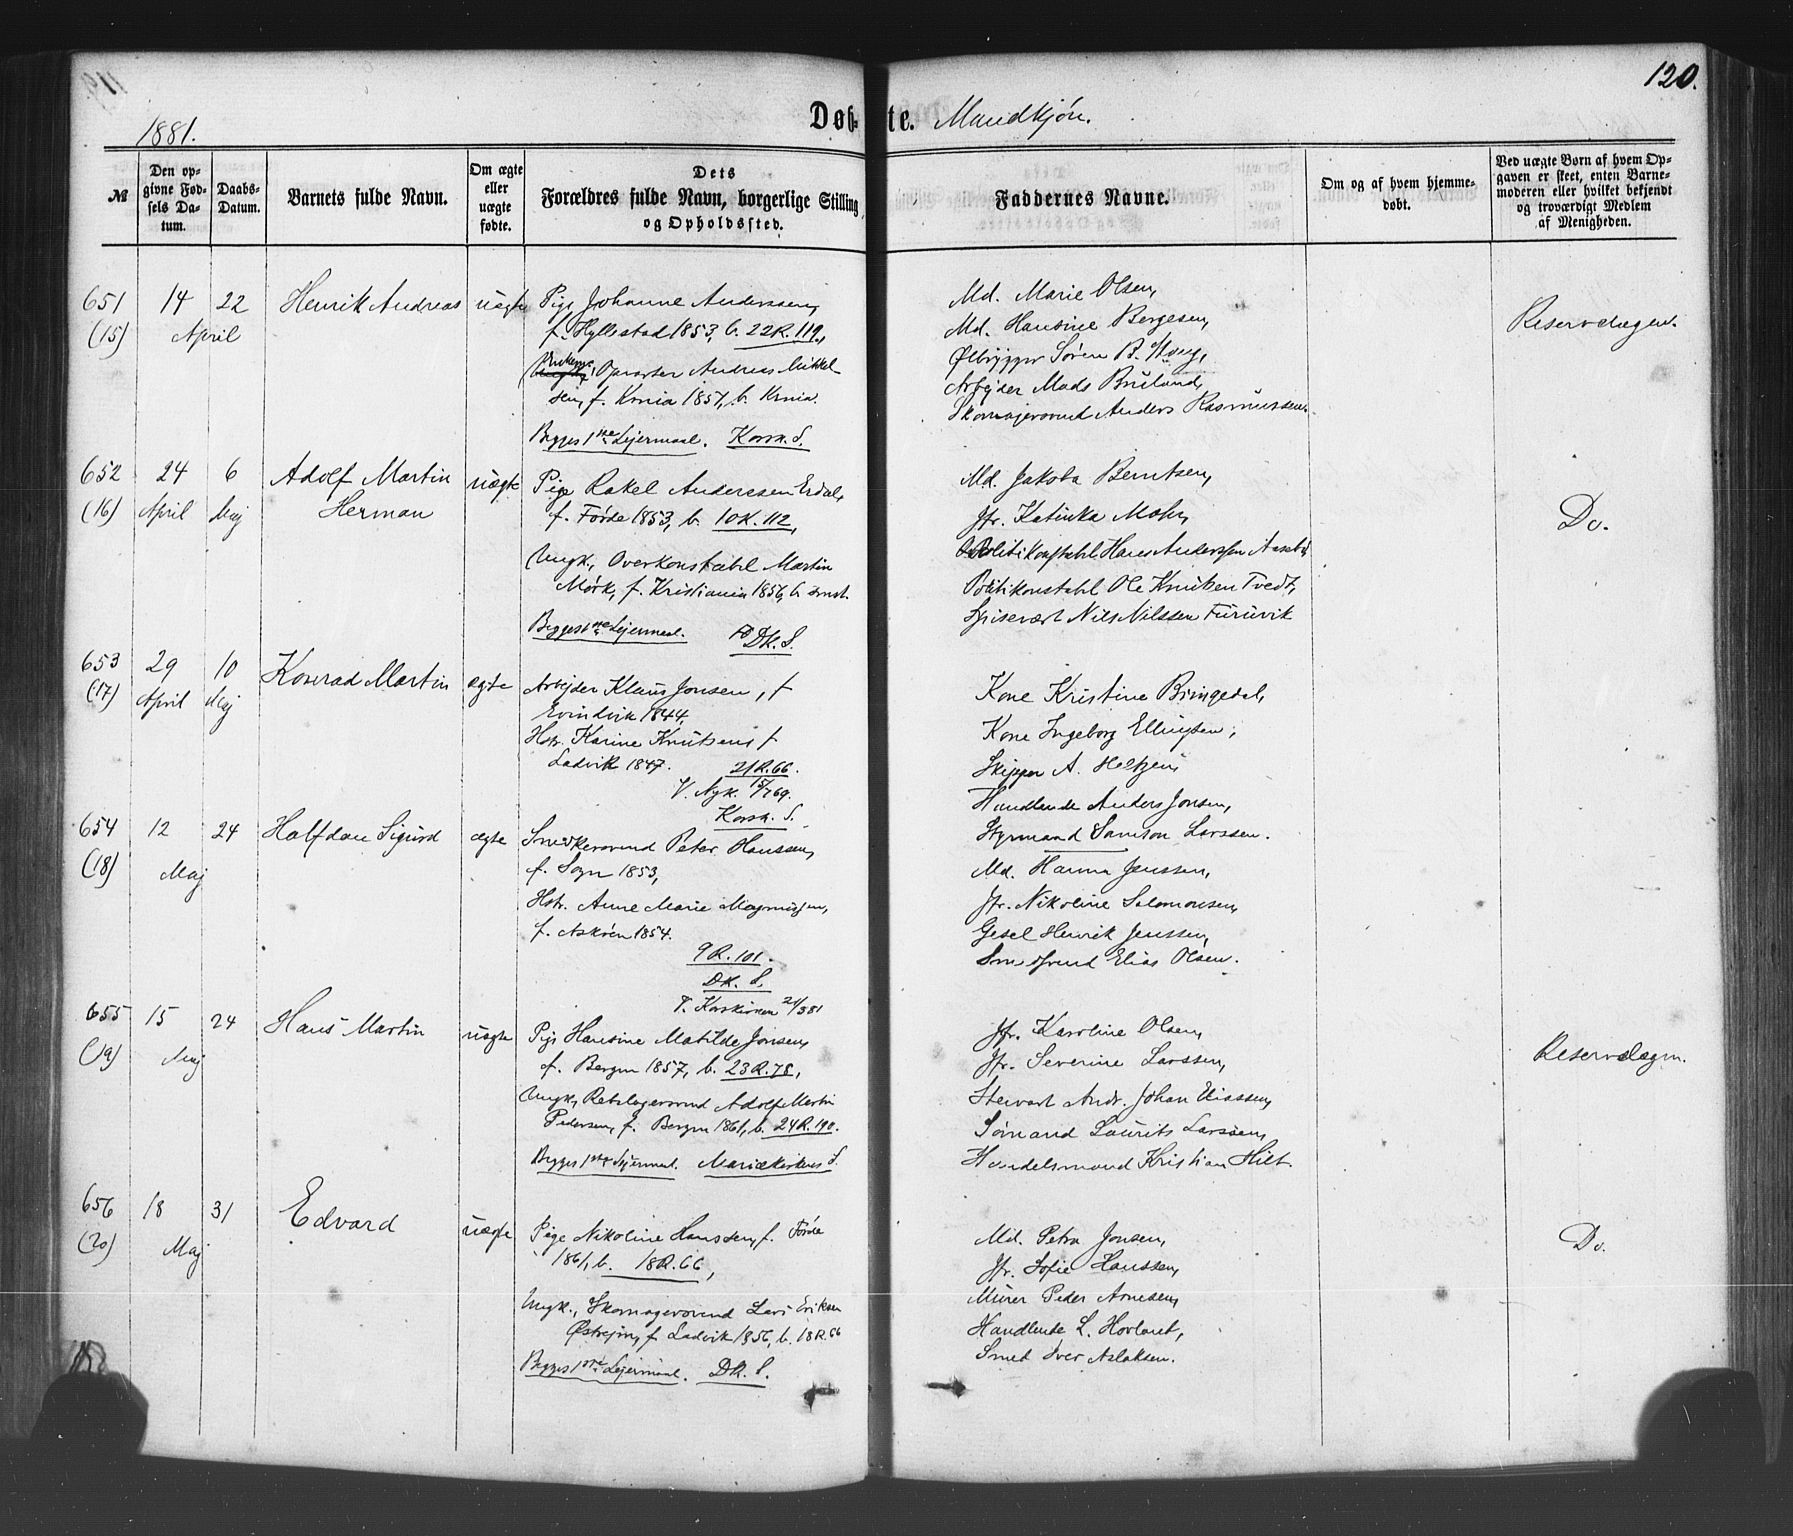 120.
1881.
Døb- te. Mandkjøn.
№
Den op-
givne Fød-
sels Da-
tum.
Daabs-
Datum.
Barnets fulde Navn.
Om ægte
eller
uægte
fødte.
Dets
Forældres fulde Navn, borgerlige Stilling
og Opholdssted.
Faddernes Navne.
Om og af hvem hjemme-
døbt.
Ved uægte Børn af hvem Op-
gaven er skeet, enten Barne-
moderen eller hvilket bekjendt
og troværdigt Medlem
af Menigheden.
651
(15)
14 22
April
Henrik Andreas
uægte
Pige Johanne Anderssen,
f. Hyllestad 1853, b. 22R.119,
Opvarter Andreas Mikkel-
sen, f. Krnia 1857, b. Krnia.
Begges 1ste Lejermaal. Korsk. S.
Md. Marie Olsen,
Md. Hansine Bergesen,
Ølbrygger Søren B.
Arbejder Mads
Skomagersvend Anders Rasmussen.
Reservelægen.
652
(16)
24 6
April Maj
Adolf Martin
Herman
uægte
Pige Rakel Anderssen Erdal,
f. Førde 1853, b. 10R.112,
Ungk. Overkonstabel Martin
Mørk, f. Kristiania 1856, b.
Begges 1ste Lejermaal. Dk. S.
Md. Jakoba Berntsen,
Jfr. Katinka Mohr,
Politikonstabl Hans Anderssen
Politikonstabl Ole Knutsen Tvedt,
Spisevært Nils Nilssen Furuvik
Do.
653
(17)
29 10
April Maj
Konrad Martin
ægte
Arbejder Klaus Jonsen, f.
Evindvik 1844,
Hstr. Karine Knutsen f.
Ladvik 1847. 21R.66.
V. Nyk.
Korsk. S.
Kone Kristine Bringedal,
Kone Ingeborg Ellingsen,
Skipper A.
Handlende Anders Jonsen,
Styrmand Samson Larssen.
654
(18)
12 24
Maj
Halfdan Sigurd
ægte
Snedkersvend Peter Hanssen,
f. Sogn 1853,
Hstr. Anne Marie Magnussen,
f. Askøen 1854.
9R.101.
Dk. S.
V. Korskirken 21/3 81
Md. Hanna Jenssen,
Jfr. Nikoline Salomonsen,
Gesel Henrik Jenssen,
Smedsvend Elias Olsen.
655
(19)
15 24
Maj
Hans Martin
uægte
Pige Hansine Matilde Jonsen,
f. Bergen 1857, b. 23R.78,
Ungk. Rebslagersvend Adolf Martin
Pedersen, f. Bergen 1861, b. 24R.190.
Begges 1ste Lejermaal. Mariækirkens S.
Jfr. Karoline Olsen,
Jfr. Severine Larssen,
Stewart Andr. Johan
Sømand Laurits Larssen,
Handelsmand Kristian Hilt.
Reservelægen.
656
(20)
18 31
Maj
Edvard
uægte
Pige Nikoline Hanssen, f. Førde
1861, b. 18R.66,
Ungk., Skomagersvend Lars Eriksen
f. Ladvik 1856, b. 18R.66
Begges 1ste Lejermaal. Dk. S.
Md. Petra Jonsen,
Jfr. Sofie Hanssen,
Murer Peder Arnesen,
Handlende L. Hovland,
Smed Iver Aslaksen.
Do.